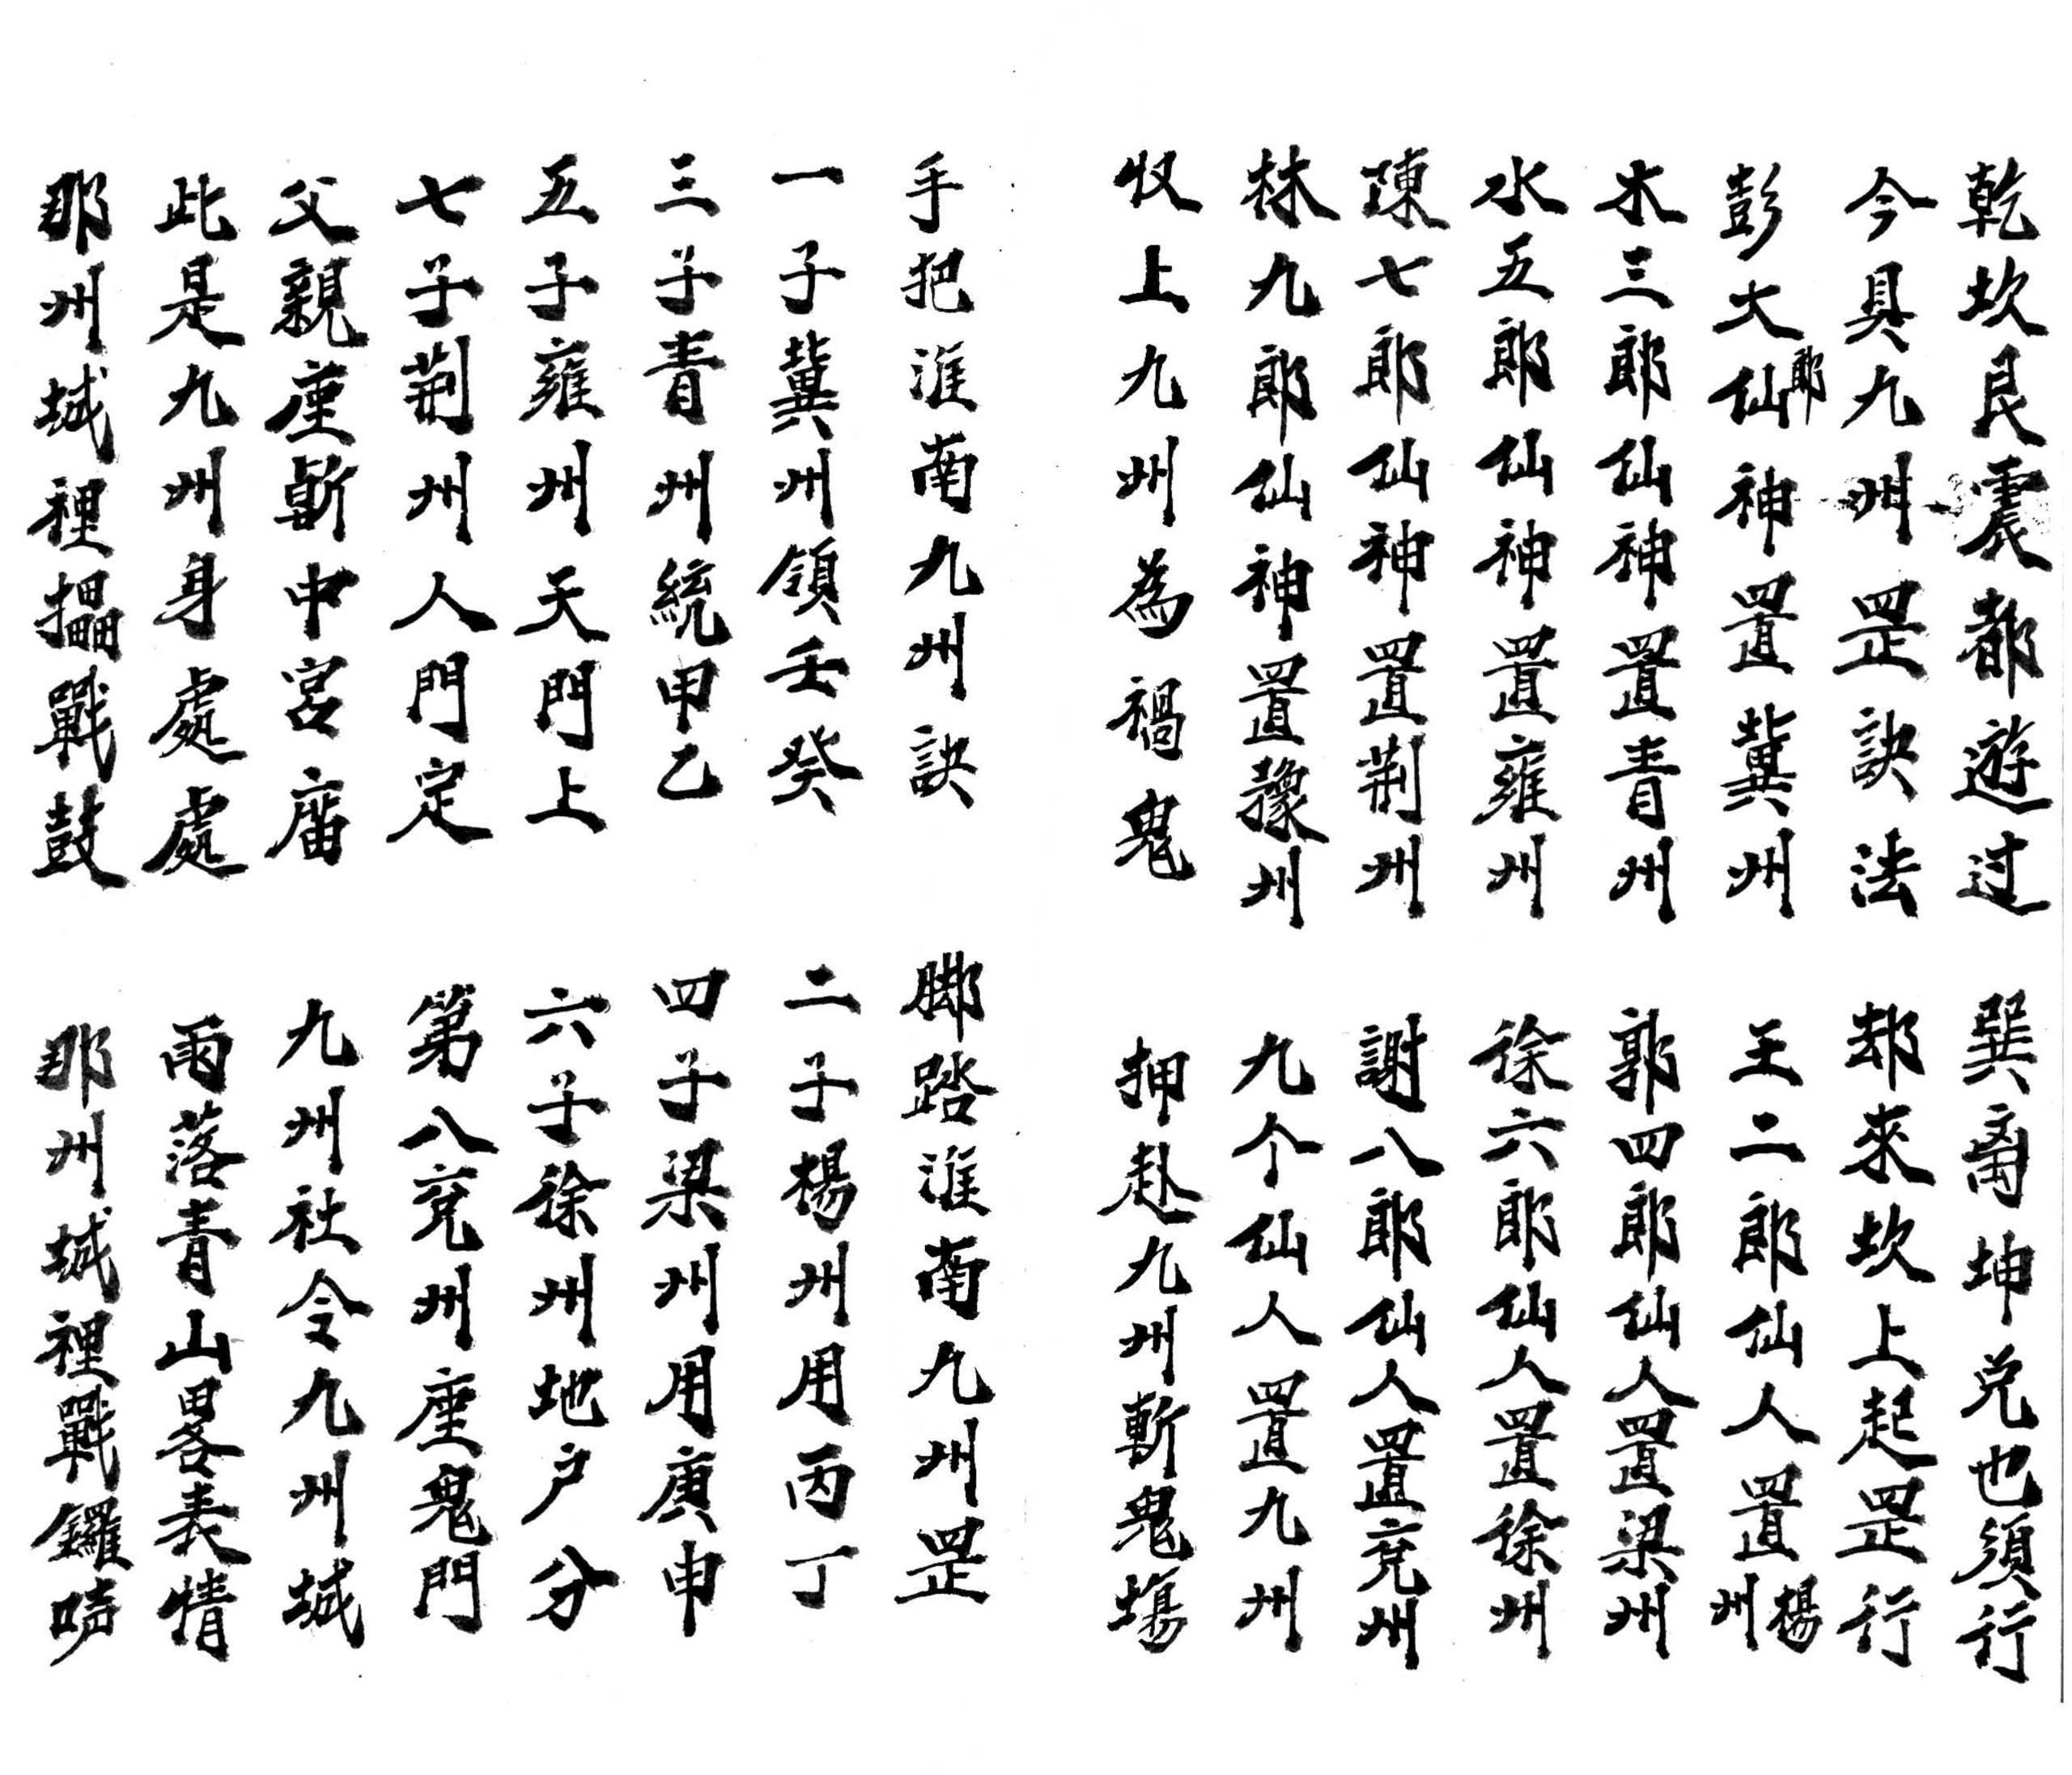 乾坎艮震都遊过　巽离坤兑也須行
今具九州罡訣法　却來坎上起罡行
彭大郎仙神置冀州　王二郎仙人置楊州
木三郎仙神置青州　郭四郎仙人置梁州
水五郎仙神置雍州　徐六郎仙人置徐州
陳七郎仙神置荆州　謝八郎仙人置兖州
林九郎仙神置豫州　九个仙人置九州
収上九州為禍鬼　押赴九州斬鬼塲
手把淮南九州訣　脚踏淮南九州罡
一子冀州領壬癸　二子楊州用丙丁
三子青州統甲乙　四子梁州用庚申
五子雍州天門上　六子徐州地户分
七子荆州人門定　第八兖州座鬼門
父親座斬中宮庙　九州社令九州城
此是九州身處處　雨落青山畧表情
那州城裡擂戰鼓　那州城裡戰鑼